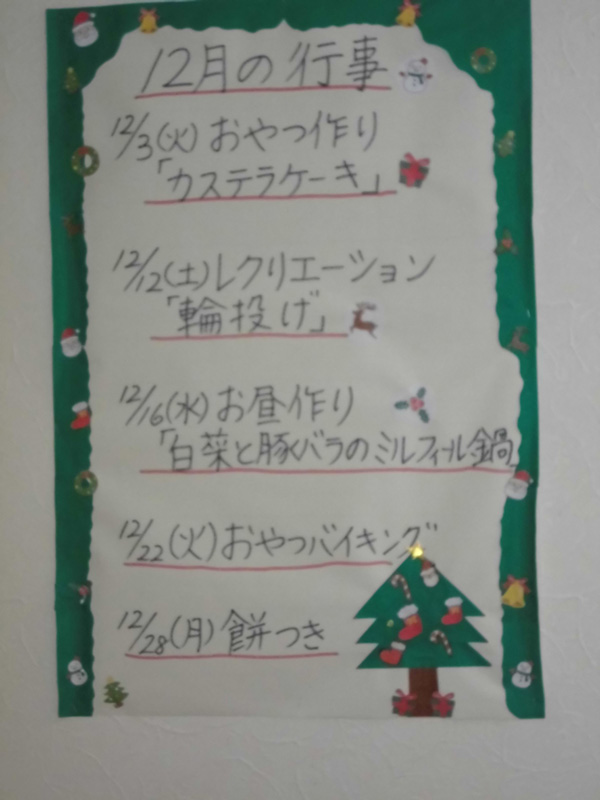 12月の行事
12/3(火)おやつ作り
「カステラケーキ」
12/12(土)レクリエーション
「輪投げ」
12/16(水)お昼作り
「白菜と豚バラのミルフィール鍋」
12/22(火)おやつバイキング
12/28(月)餅つき